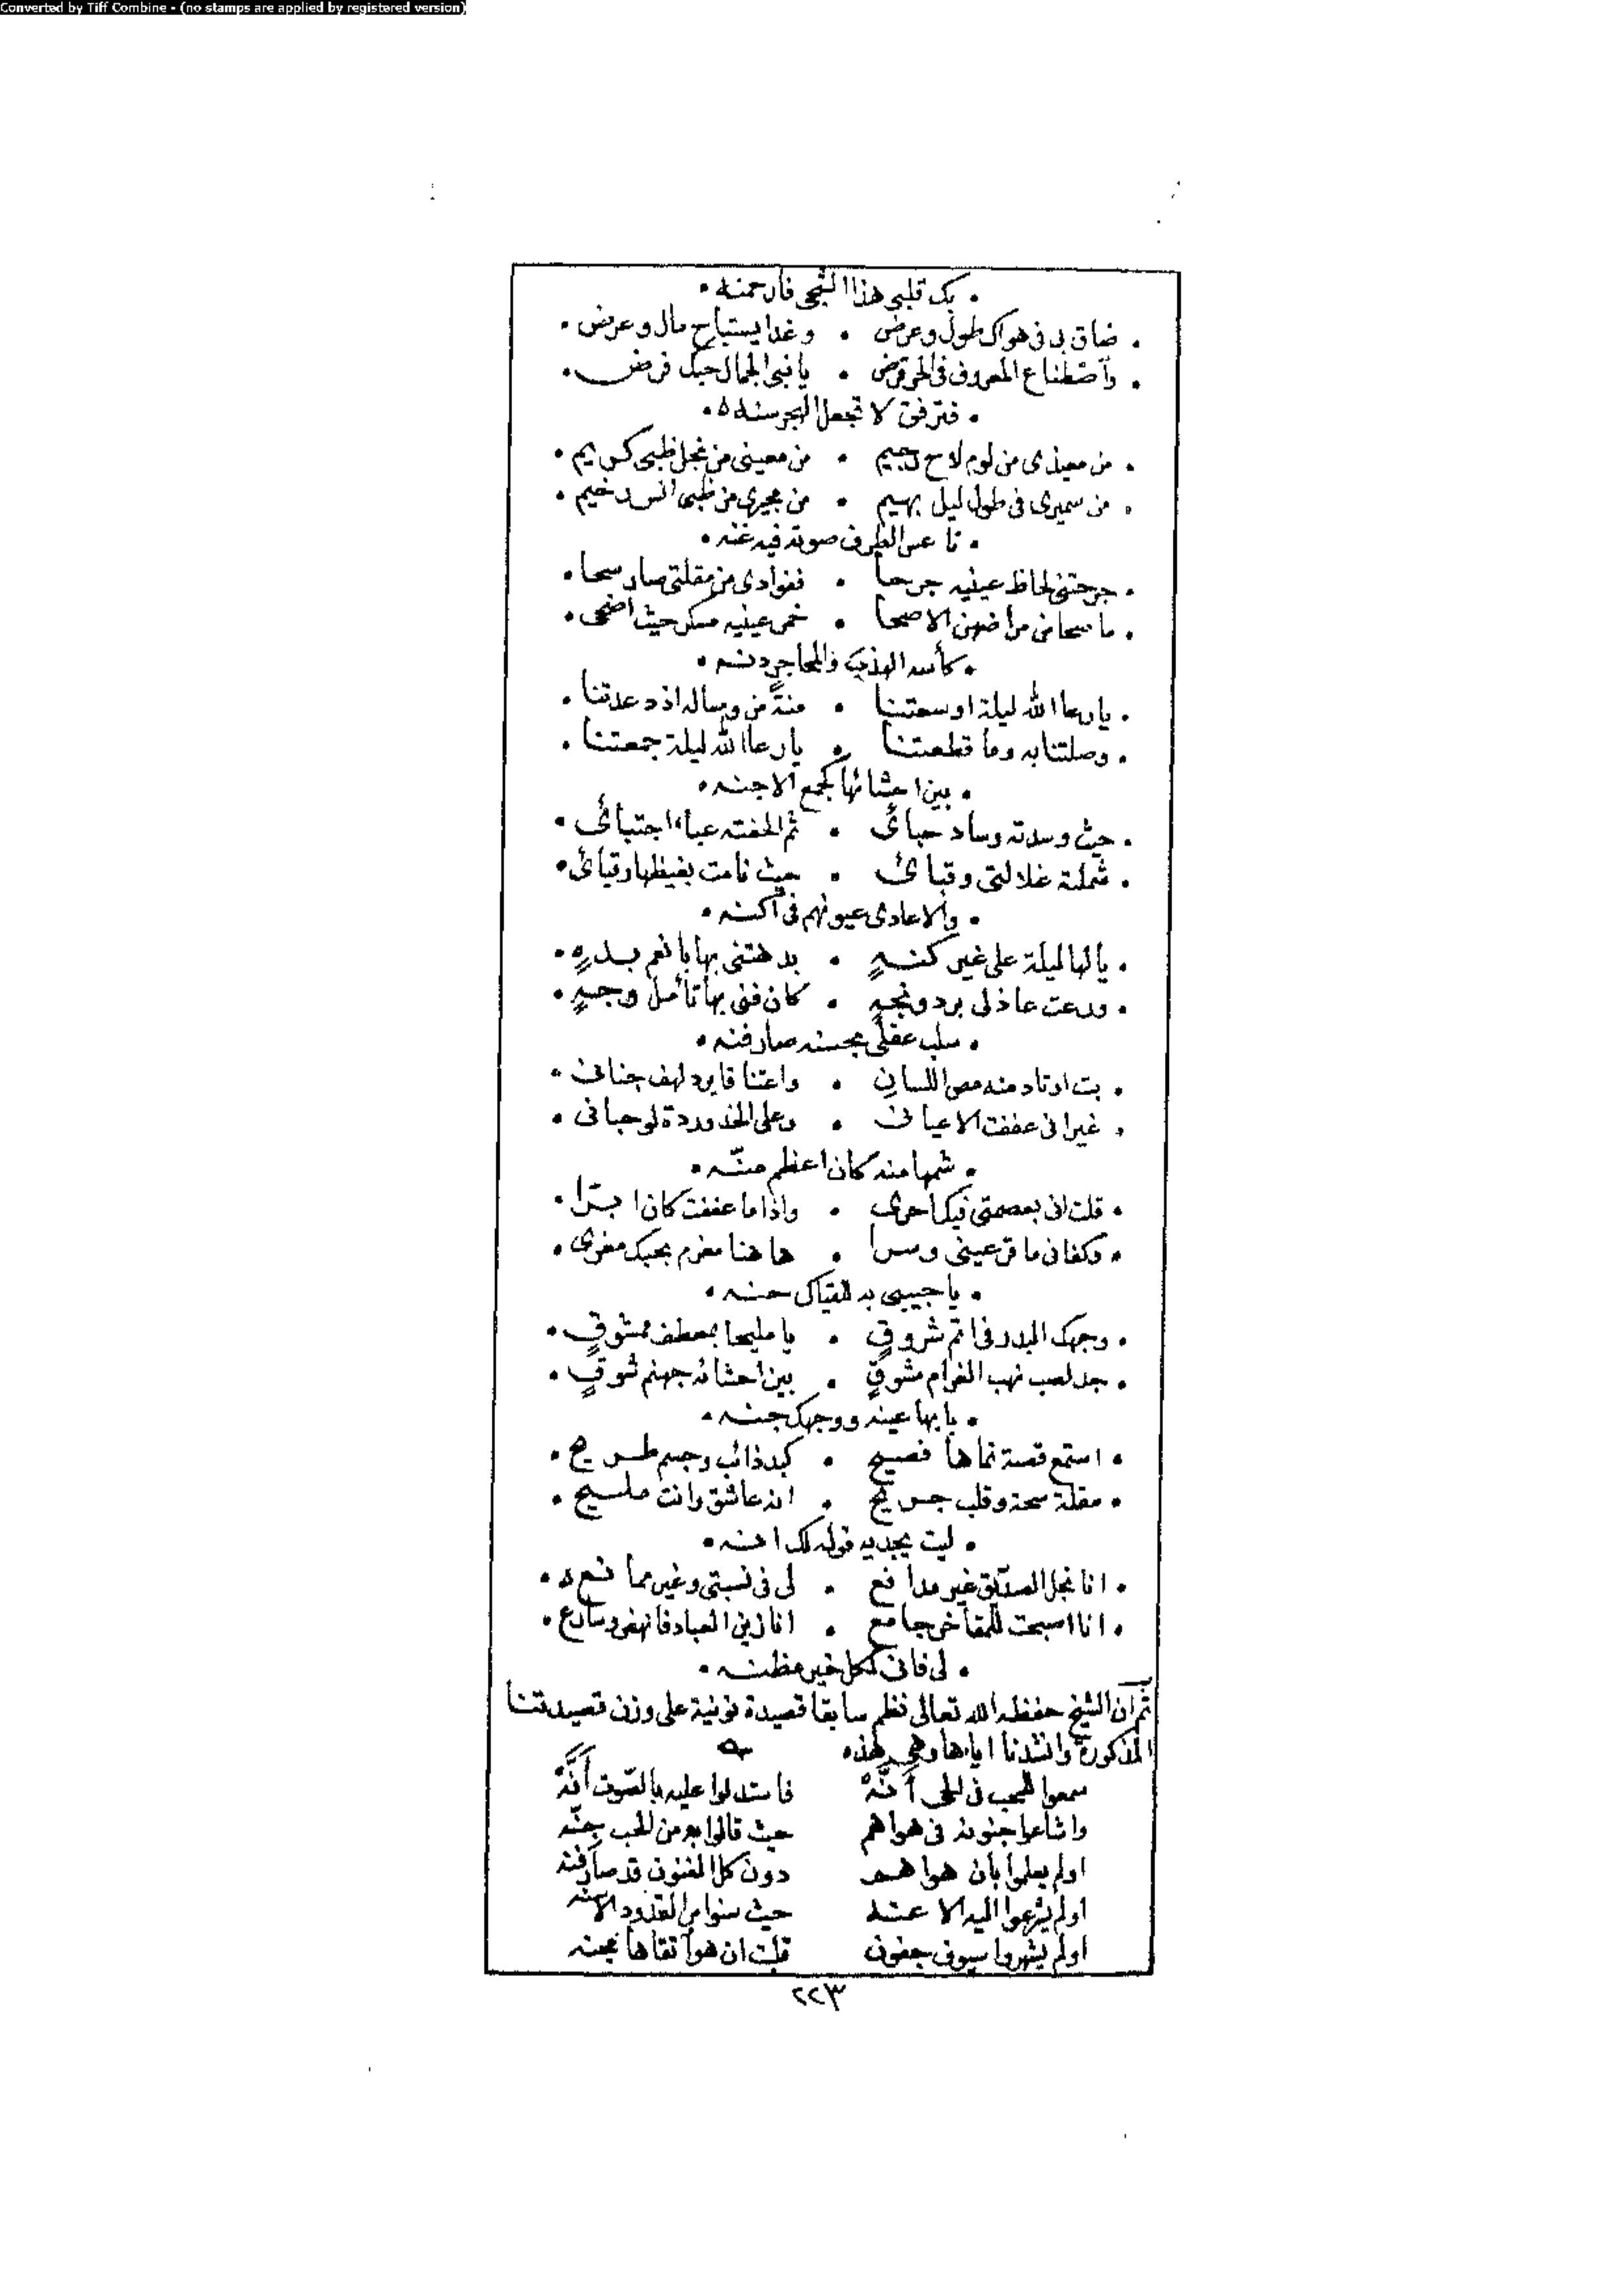 Converted by Tiff Combine - (no stamps are applied by registered version)
• بك قلبى هذا الشجى فارحمنه •
• ضاق بى فى هواك طول وعرض • وغدا يستباح مال وعرض •
• واصطناع المعروف فى الحر قرض • يا نبى الجمال حبك فرض •
• فترفق لا تجعل الهجر سنه •
• من معيذى من لوم لاح رجيم • من معينى من نجل ظبى كريم •
• من سميرى فى طول ليل بهيم • من مجيرى من ظبى انس رخيم •
• ناعس الطرف صوته فيه غنه •
• جرحتنى لحاظ عينيه جرحا • ففؤادى من مقلتى صار سحا •
• ما صحا من مراضهن الاصحا • خمر عينيه مسكر حيث اضحى •
• كأسه الهدب والمحاجر دنه •
• يا رعا الله ليلة اوسعتنا • منة من وصاله اذ دعتنا •
• وصلتنا به وما قطعتنا • يا رعا الله ليلة جمعتنا •
• بين احشائها كجمع الاجنه •
• حيث وسدته وساد حبائى • ثم الحفته عباء اجتبائى •
• شملته غلالتى وقبائى • حيث نامت بغيظها رقبائى •
• والاعادى عيونهم فى اكنه •
• يالها ليلة على غير كنه • بدهتنى بها بانعم بده •
• ودعت عاذلى برد ونجه • كان فنى بها تأمل وجه •
• سلب عقلى بحسنه صار فنه •
• بت ارتاد منه مص اللسان • واعتناقا يرد لهف جنانى •
• غير انى عففت الاعيانى • وعلى الخد وردة لو حبانى •
• شمها منه كان اعظم منه •
• قلت انى بعصمتى فيك احرى • واذا ما عففت كان ابرا •
• وكفانى ما قر عينى وسرا • ها هنا مغرم بحبك مغرى •
• يا حبيبى به للقياك حنه •
• وجهك البدر فى اتم شروق • يا مليحا بمعطف ممشوق •
• جد لصب نهب الغرام مشوق • بين احشائه جهنم شوق •
• يا بها عينه ووجهك جنه •
• استمع قصة نماها فصيح • كبد ذائب وجسم طريح •
• مقلة سحة وقلب جريح • انه عاشق وانت مليح •
• ليت يجديه قوله لك انه •
• انا نجل الصديق غير مدافع • لى فى نسبتى وغير ممانع •
• انا اصبحت للمفاخر جامع • انا زين العباد فانهض وسارع •
• لى فانى لكل خير مظنه •
ثم ان الشيخ حفظه الله تعالى نظم سابقا قصيدة نونية على وزن قصيدتنا
المذكورة وانشدنا اياها وهى هذه
سمعوا للمحب فى الحى أنه فاستدلوا عليه بالصوت أنه
واشاعوا جنونه فى هواهم حيث قالوا به من الحب جنه
اولم يعلموا بأن هواهم دون كل الفنون قد صار فنه
اولم يشرعوا اليه الاعنه حيث سنوا من القدود الاسنه
اولم يشهروا سيوف جفون قلت ان هو اتقاها بجنه
٢٢٣